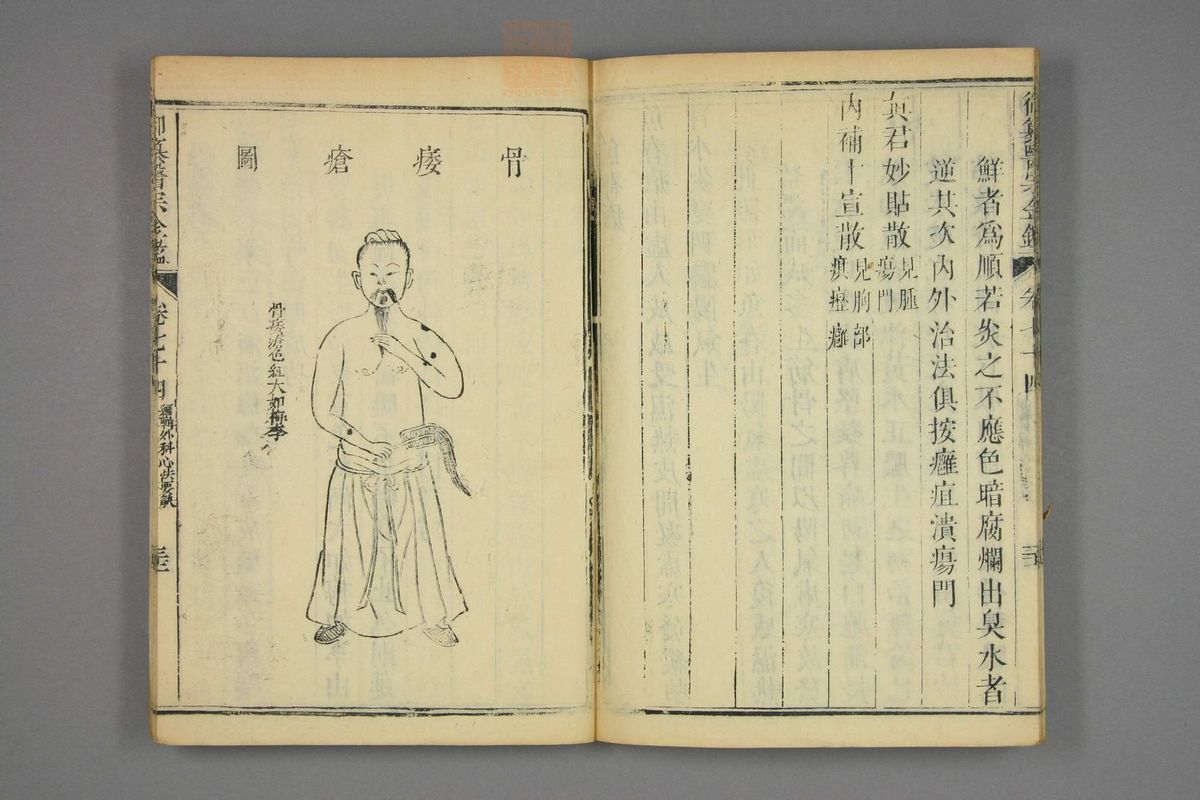 鮮者爲順若灸之不應色暗腐爛出臭水者
逆其次內外治法俱按癰疽潰瘍門
真君妙貼散見腫瘍門
內補十宣散見胸部疽癰
骨痿瘡圖
骨痿瘡色紅大如梅李
御纂醫宗金鑑
卷七十四
編輯外科心法要訣